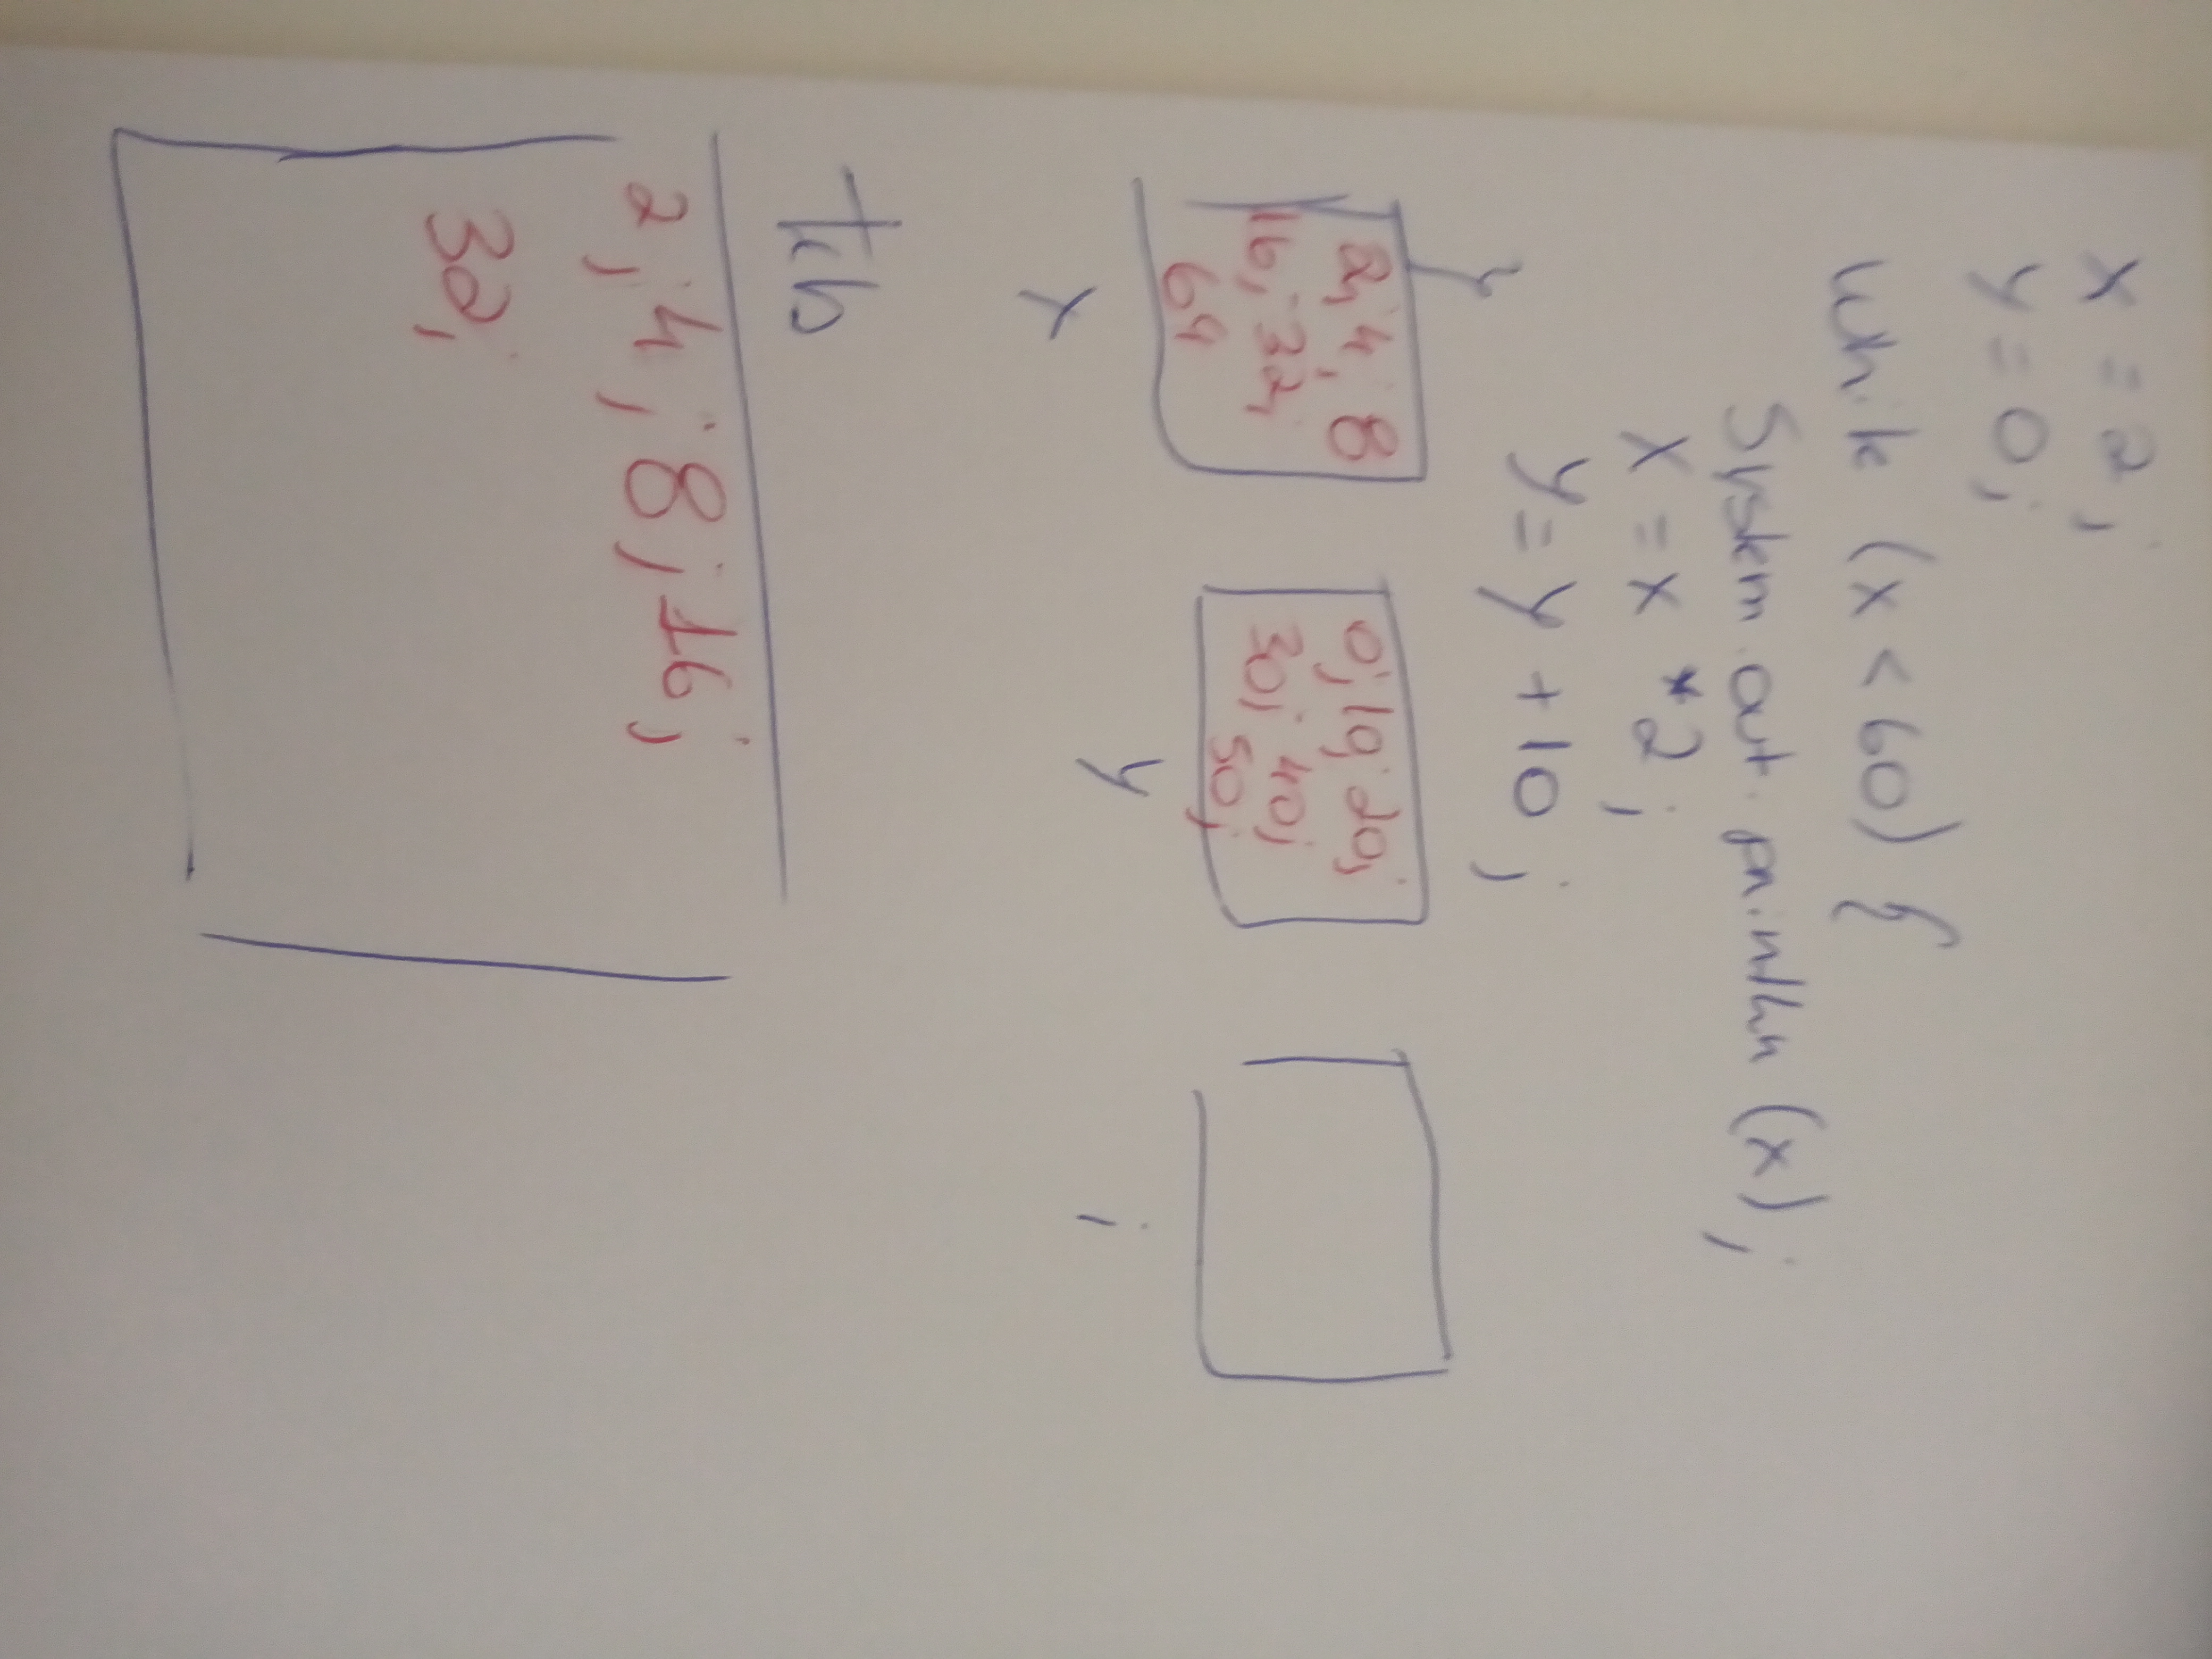 x = 2;
y = 0;
while (x < 60) {
System.out.println (x);
x = x * 2;
y = y + 10;
y
2; 4; 8
16; 32;
64
0; 10; 20;
30; 40;
50;
x
y
i
2; 4; 8; 16;
32;